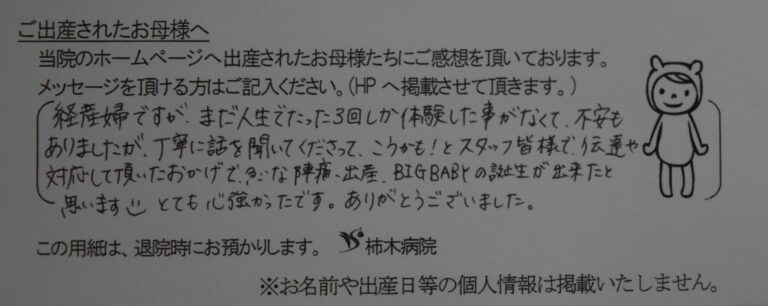 ご出産されたお母様へ
当院のホームページへ出産されたお母様たちにご感想を頂いております。
メッセージを頂ける方はご記入ください。(HPへ掲載させて頂きます。)
経産婦ですが、まだ人生でたった3回しか体験した事がなくて、不安も
ありましたが、丁寧に話を聞いてくださって、こうかも!とスタッフ皆様で伝達や
対応して頂いたおかげで、急な陣痛、出産、BIG BABYの誕生が出来たと
思います とても心強かったです。ありがとうございました。
この用紙は、退院時にお預かりします。 柿木病院
※お名前や出産日等の個人情報は掲載いたしません。